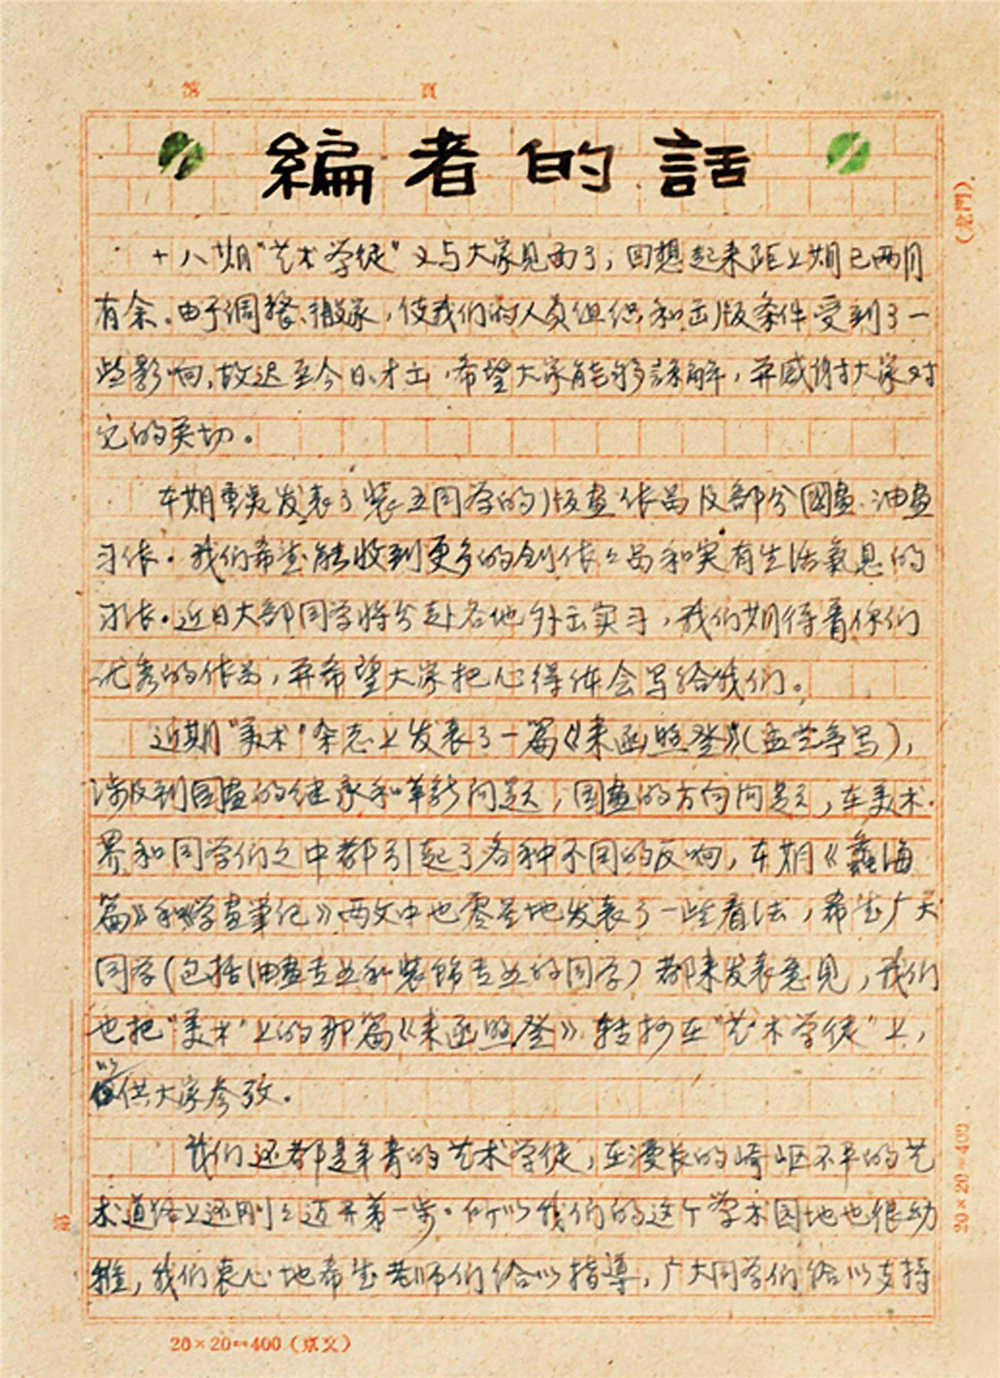 第 頁
編者的話
十八期“艺术学徒”又与大家见面了，回想起来距上期已两月
有余。由于调整、搬家，使我们的人员组织和出版条件受到了一
些影响，故迟至今日才出，希望大家能够諒解，并感謝大家对
它的关切。
本期重点发表了装五同学的版畫作品及部分國畫、油畫
习作。我们希望能收到更多的创作作品和富有生活氣息的
习作。近日大部同学将分赴各地外出实习，我们期待着你们
优秀的作品，并希望大家把心得体会写给我们。
近期“美术”杂志上发表了一篇《来函照登》（孟兰亭写），
涉及到国畫的继承和革新问题，国畫的方向问题，在美术
界和同学们之中都引起了各种不同的反响，本期《蠡海
篇》和《学畫筆记》两文中也零星地发表了一些看法，希望广大
同学（包括油畫专业和装饰专业的同学）都来发表意见，我们
也把“美术”上的那篇《来函照登》转抄在“艺术学徒”上，
以供大家参攷。
我们还都是年青的艺术学徒，在漫长的崎岖不平的艺
术道路上还刚刚迈开第一步。所以我们的这个学术园地也很幼
稚，我们衷心地希望老师们给以指導，广大同学们给以支持
20×20=400（京文）
20×20=400